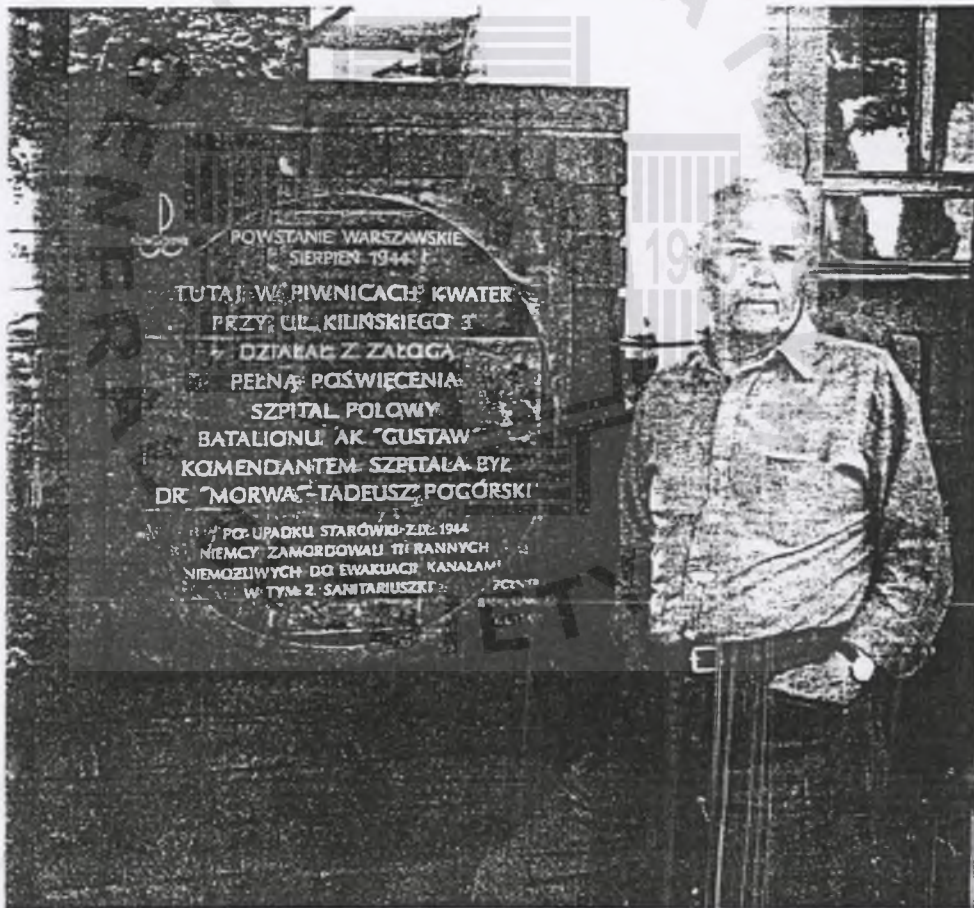 POWSTANIE WARSZAWSKIE
SIERPIEŃ 1944
TUTAJ W PIWNICACH KWATER
PRZY UL. KILIŃSKIEGO
DZIAŁAŁ Z ZAŁOGĄ
PEŁNĄ POŚWIĘCENIA
SZPITAL POLOWY
BATALIONU AK "GUSTAW"
KOMENDANTEM SZPITALA BYŁ
DR "MORWA"-TADEUSZ POGÓRSKI
PO UPADKU STARÓWKI 2.IX.1944
NIEMCY ZAMORDOWALI RANNYCH
NIEMOŻLIWYCH DO EWAKUACJI KANAŁAMI
W TYM 2 SANITARIUSZKI